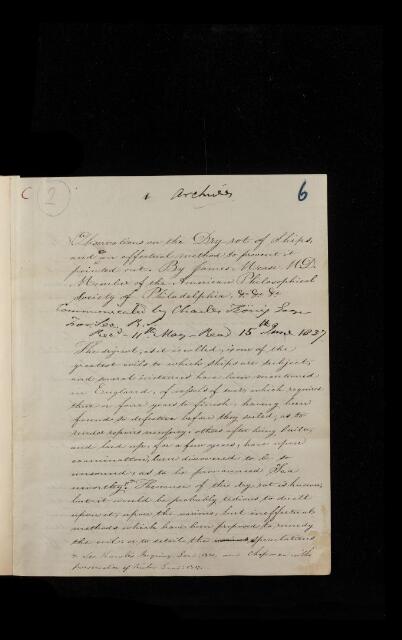 C 2 Archives 6
Observations on the Dry rot of Ships,
and an effectual method to prevent it
pointed out. By James Mease M.D.
Member of the American Philosophical
Society of Philadelphia, &c &c &c
Communicated by Charles König Esq.
For. Sec. R. S.
Recd. 11th May - Read 15th June 1837
The dry rot, as it is called, is one of the
greatest evils to which ships are subject,
and several instances have been mentioned
in England, of vessels of war, which required
three or four years to finish, having been
found so defective before they sailed, as to
render repairs necessary; others after being built,
and laid up, for a few years, have upon
examination, been discovered to be so
unsound, as to be pronounced Sea
unworthy. The cause of the dry rot is known,
but it would be probably tedious to dwell
upon it, upon the various, but ineffectual
methods which have been proposed to remedy
the evil, or to detail the speculations
* See Knowles Inquiry, Lond. 1821, and Chapman on the
Preservation of Timber Lond. 1817.